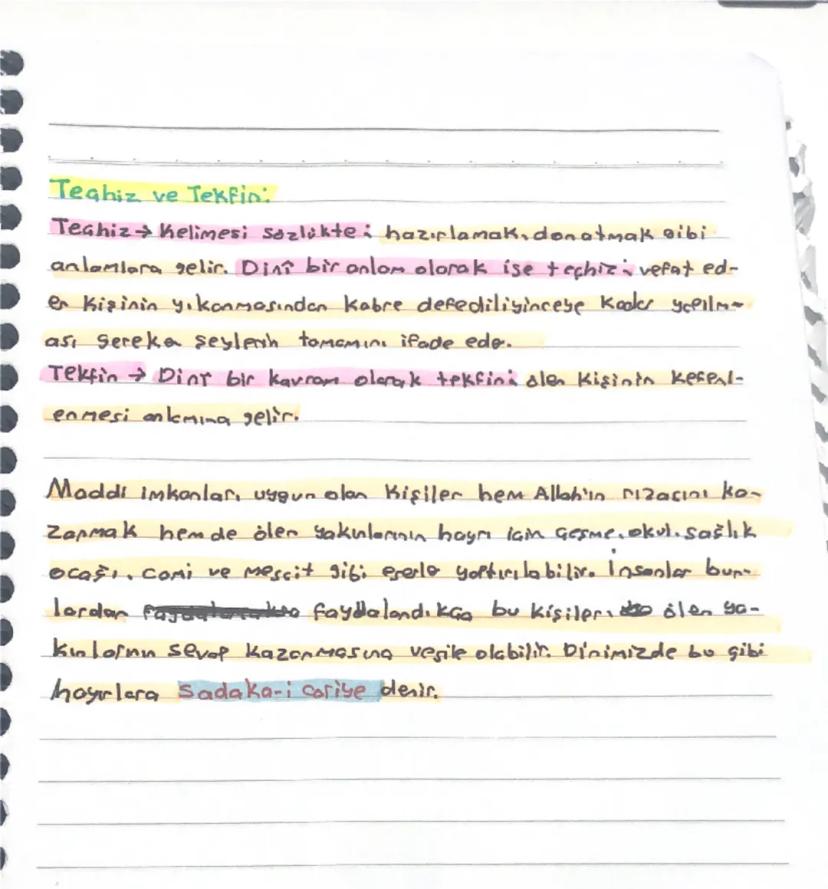 Teçhiz ve Tekfin:
Teçhiz → Kelimesi sözlükte; hazırlamak, donatmak gibi
anlamlara gelir. Dinî bir anlam olarak ise teçhiz; vefat ed-
en kişinin yıkanmasından kabre defediliyinceye kadar yapılm-
ası gereken şeylerin tamamını ifade eder.
Tekfin → Dinî bir kavram olarak tekfin; ölen kişinin kefenl-
enmesi anlamına gelir.
Maddi imkanları uygun olan kişiler hem Allah'ın rızasını ka-
zanmak hem de ölen yakınlarının hayrı için çeşme, okul, sağlık
ocağı, cami ve mescit gibi eserler yaptırılabilir. İnsanlar bun-
lardan faydalandıkça bu kişileri ölen ya-
kınlarının sevap kazanmasına vesile olabilir. Dinimizde bu gibi
hayırlara sadaka-i cariye denir.